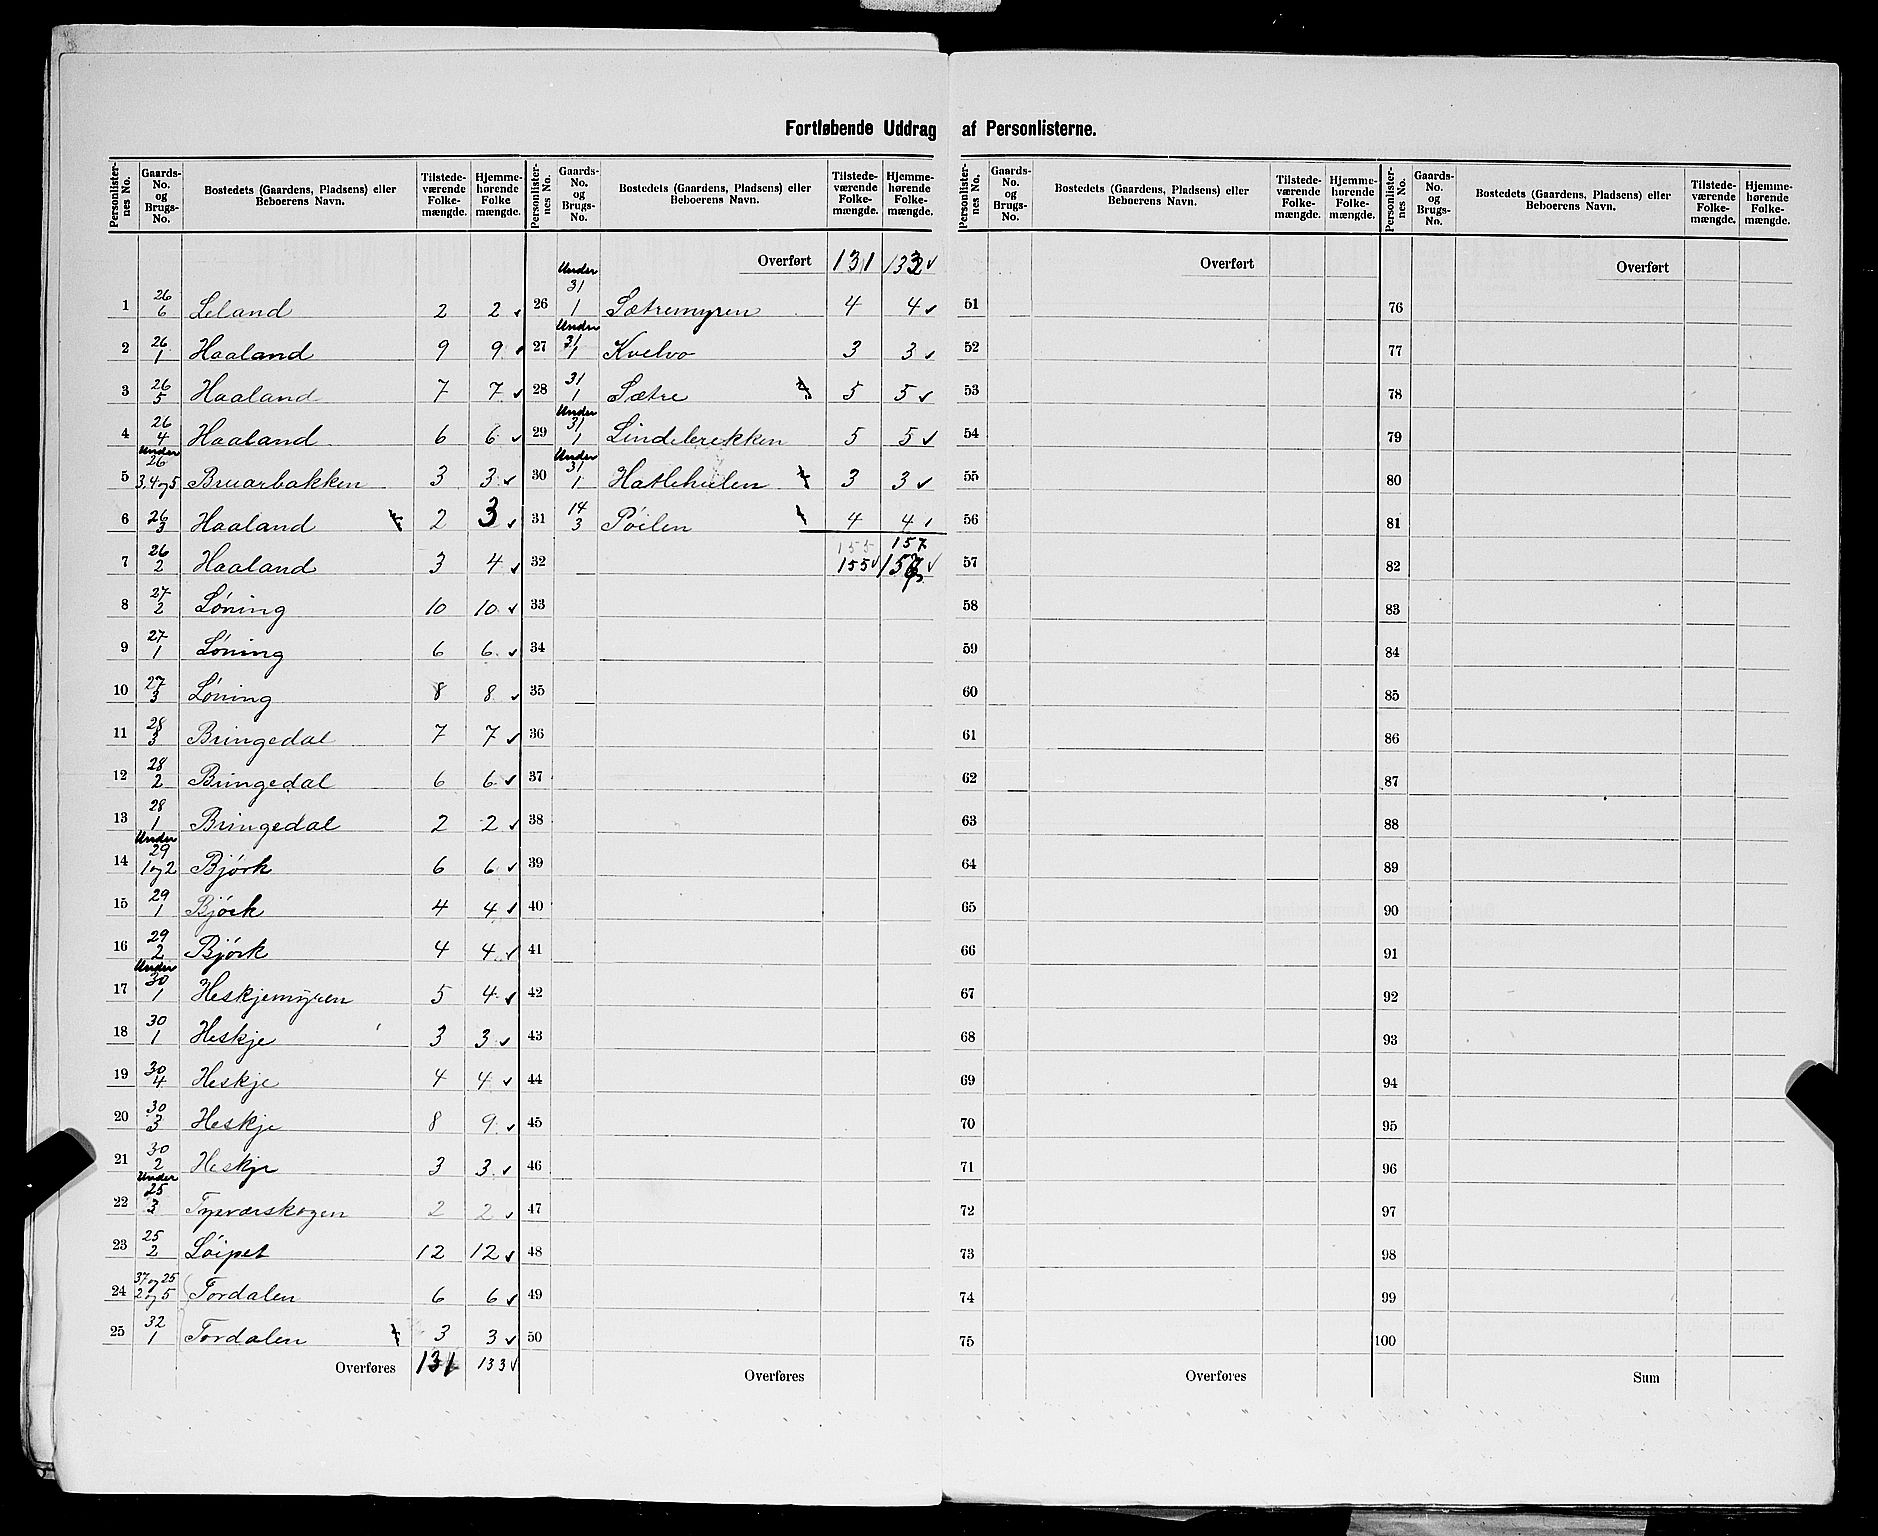 Fortløbende Uddrag af Personlisterne.
Personlister-nes No. | Gaards-No. og Brugs-No. | Bostedets (Gaardens, Pladsens) eller Beboerens Navn. | Tilstede-værende Folke-mængde. | Hjemme-hørende Folke mængde.
1 | 26 6 | Leland | 2 | 2
2 | 26 1 | Haaland | 9 | 9
3 | 26 5 | Haaland | 7 | 7
4 | 26 4 | Haaland | 6 | 6
5 | Under 26 3,4 og 5 | Bruarbakken | 3 | 3
6 | 26 3 | Haaland | 2 | 3
7 | 26 2 | Haaland | 3 | 4
8 | 27 2 | Løning | 10 | 10
9 | 27 1 | Løning | 6 | 6
10 | 27 3 | Løning | 8 | 8
11 | 28 3 | Bringedal | 7 | 7
12 | 28 2 | Bringedal | 6 | 6
13 | 28 1 | Bringedal | 2 | 2
14 | Under 29 1 og 2 | Bjørk | 6 | 6
15 | 29 1 | Bjørk | 4 | 4
16 | 29 2 | Bjørk | 4 | 4
17 | Under 30 1 | Heskjemyren | 5 | 4
18 | 30 1 | Heskje | 3 | 3
19 | 30 4 | Heskje | 4 | 4
20 | 30 3 | Heskje | 8 | 9
21 | 30 2 | Heskje | 3 | 3
22 | Under 25 3 | Tysværskogen | 2 | 2
23 | 25 2 | Løipet | 12 | 12
24 | 37 og 25 2 og 5 | Tordalen | 6 | 6
25 | 32 1 | Tordalen | 3 | 3
Overføres | 131 | 133
Personlister-nes No. | Gaards-No. og Brugs-No. | Bostedets (Gaardens, Pladsens) eller Beboerens Navn. | Tilstede-værende Folke-mængde. | Hjemme-hørende Folke-mængde.
Overført | 131 | 133
26 | Under 31 1 | Sætremyren | 4 | 4
27 | Under 31 1 | Kvelvo | 3 | 3
28 | 31 1 | Sætre | 5 | 5
29 | Under 31 1 | Lindebrekken | 5 | 5
30 | Under 31 1 | Hatlehielen | 3 | 3
31 | 14 3 | Pøilen | 4 | 4
155 | 157
32 | 155 | 157
33
34
35
36
37
38
39
40
41
42
43
44
45
46
47
48
49
50
Overføres
Personlister-nes No. | Gaards-No. og Brugs-No. | Bostedets (Gaardens, Pladsens) eller Beboerens Navn. | Tilstede-værende Folke-mængde. | Hjemme-hørende Folke-mængde.
Overført
51
52
53
54
55
56
57
58
59
60
61
62
63
64
65
66
67
68
69
70
71
72
73
74
75
Overføres
Personlister-nes No. | Gaards-No. og Brugs-No. | Bostedets (Gaardens, Pladsens) eller Beboerens Navn. | Tilstede-værende Folke-mængde. | Hjemme-hørende Folke-mængde.
Overført
76
77
78
79
80
81
82
83
84
85
86
87
88
89
90
91
92
93
94
95
96
97
98
99
100
Sum